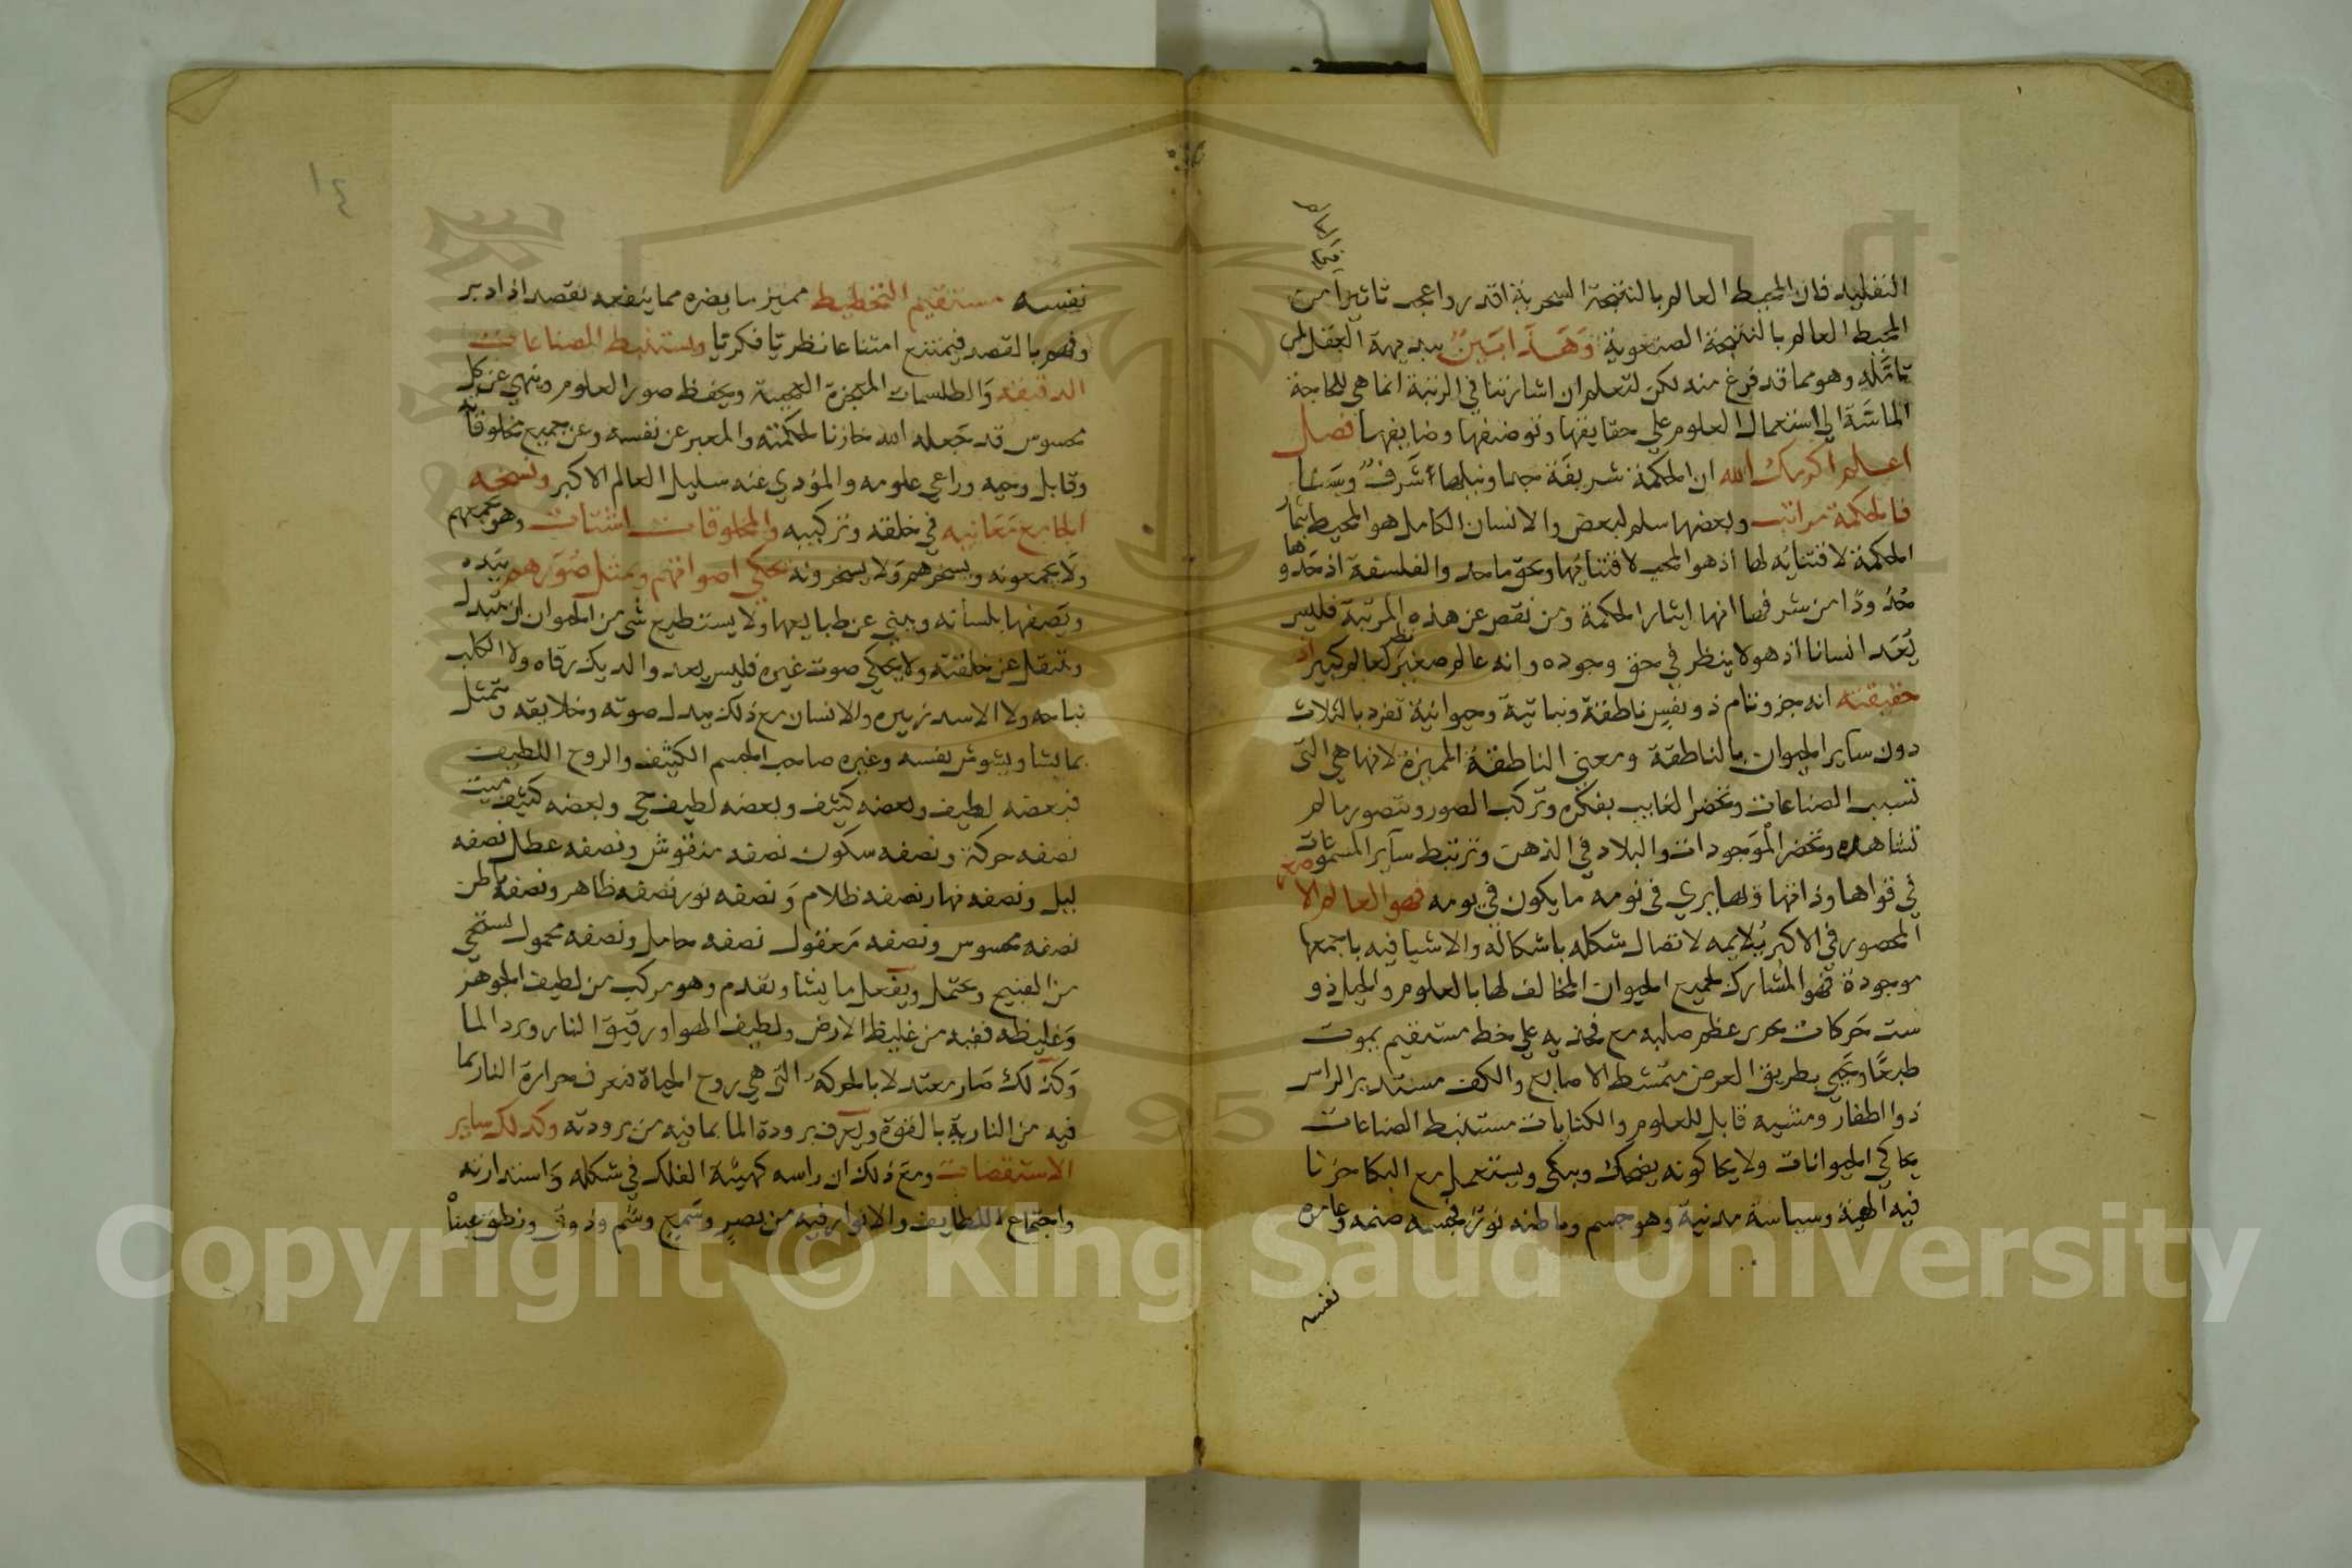 التقليد فان المحيط العالم بالنتيجة السحرية اقدر واعجب تاثيرا من
المحيط العالم بالنتيجة الصنعوية وهذا ابين ببديهة العقل لمن
تامله وهو مما قد فرغ منه لكن لتعلم ان اشارتنا في الرتبة انما هي للحاجة
الماسة الى استعمال العلوم على حقايقها وتوضيفها وضايفها فصل
اعلم اكرمك الله ان الحكمة شريفة جدا ونيلها شرف وسنا
فالحكمة مراتب وبعضها سلم لبعض والانسان الكامل هو المحيط بثمار
الحكمة لاقتنايه لها اذ هو المحب لاقتنايها وبحق ما حد والفلسفة اذ حدوها
حدودا من شرفها انها ايثار الحكمة ومن نقص عن هذه المرتبة فليس
يعد انسانا اذ هو لا ينظر في حق وجوده وانه عالم صغير نظير لعالم كبير اذ
حقيقته انه جزو تام ذو نفس ناطقة ونباتية وحيوانية تفرد بالثلاث
دون ساير الحيوان بالناطقة ومعنى الناطقة المميزة لانها هي التي
تسبب الصناعات وتحضر الغايب بفكره وتركب الصور وتتصور ما لم
تشاهده وتحضر الموجودات والبلاد في الذهن وترتبط ساير المسموعات
في قواها وذاتها وبها يري في نومه ما يكون في يومه فهو العالم الاصغر
المحصور في الاكبر يلايمه لاتصال شكله باشكاله والاشيا فيه باجمعها
موجودة فهو المشارك لجميع الحيوان المخالف لها بالعلوم والحيل ذو
ست حركات يجري عظم صلبه مع فخذيه على خط مستقيم يموت
طبعا ويحيى بطريق العرض متمشط الاصابع والكف مستدير الراس
ذو اظفار ومشيه قابل للعلوم والكتابات مستنبط الصناعات
يحاكي الحيوانات ولا يحاكونه يضحك ويبكي ويستعمل مع البكا حزنا
فيه الهية وسياسة مدنية وهو جسم وباطنه نور فجسمه صنمه وعامره
نفسه
نفسه مستقيم التخطيط مميز ما يضره مما ينفعه يقصد اذا دبر
وفهم بالقصد فيمتنع امتناعا نظريا فكريا ويستنبط الصناعات
الدقيقه والطلسمات المعجزة العجيبة ويحفظ صور العلوم وينهي عن كل
محسوس قد جعله الله خازنا لحكمته والمعبر عن نفسه وعن جميع مخلوقاته
وقابل وحيه وراعي علومه والمؤدي عنه سليل العالم الاكبر ونسخه
الجامع معانيه في خلقه وتركيبه والمخلوقات اشتات وهو يجمعهم
ولا يجمعونه ويسخرهم ولا يسخرونه يحكي اصواتهم ويمثل صورهم بيده
ويصفها بلسانه وينبي عن طبايعها ولا يستطيع شي من الحيوان ان يتبدل
وينتقل عن خلقته ولا يحكي صوت غيره فليس يعد والديك زقاه ولا الكلب
نباحه ولا الاسد زييره والانسان مع ذلك يبدل صوته وخلايقه ويتمثل
بما يشا ويشوش نفسه وغيره صاحب الجسم الكثيف والروح اللطيف
فبعضه لطيف وبعضه كثيف وبعضه لطيف حي وبعضه كثيف ميت
نصفه حركة ونصفه سكون نصفه منقوش ونصفه عطل نصفه
ليل ونصفه نهار نصفه ظلام ونصفه نور نصفه ظاهر ونصفه باطن
نصفه محسوس ونصفه معقول نصفه حامل ونصفه محمول يستحي
من القبيح ويحتمل ويفعل ما يشا ويقدم وهو مركب من لطيف الجوهر
وغليظه ففيه من غليظ الارض ولطيف الهوا ورقيق النار وبرد الما
وكذلك صار معتدلا بالحركة التي هي روح الحياة فيعرف حرارة النار بما
فيه من النارية بالقوة ويعرف برودة الما بما فيه من برودته وكذلك ساير
الاستقصات ومع ذلك ان راسه كهيئة الفلك في شكله واستدارته
واجتماع اللطايف والانوار فيه من بصر وسمع وشم وذوق ونطق عيناه
١٤